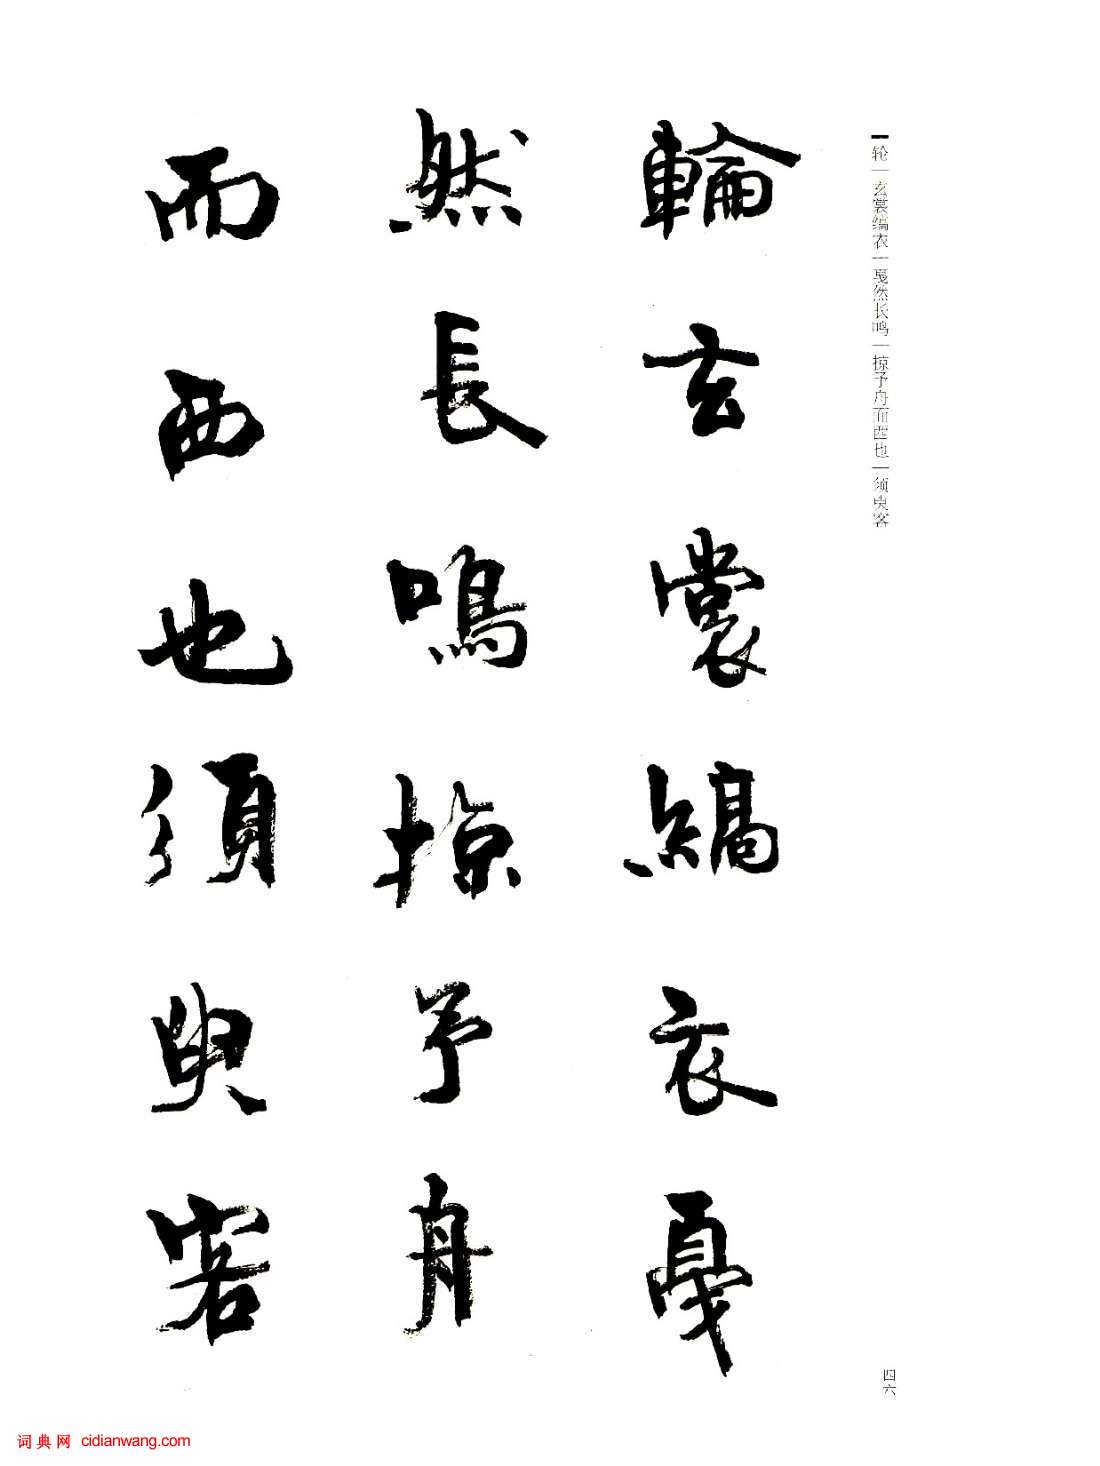 轮|玄裳缟衣|戛然长鸣|掠予舟而西也|须臾客
輪玄裳縞衣戛
然長鳴掠予舟
而西也須臾客
四六
词典网 cidianwang.com